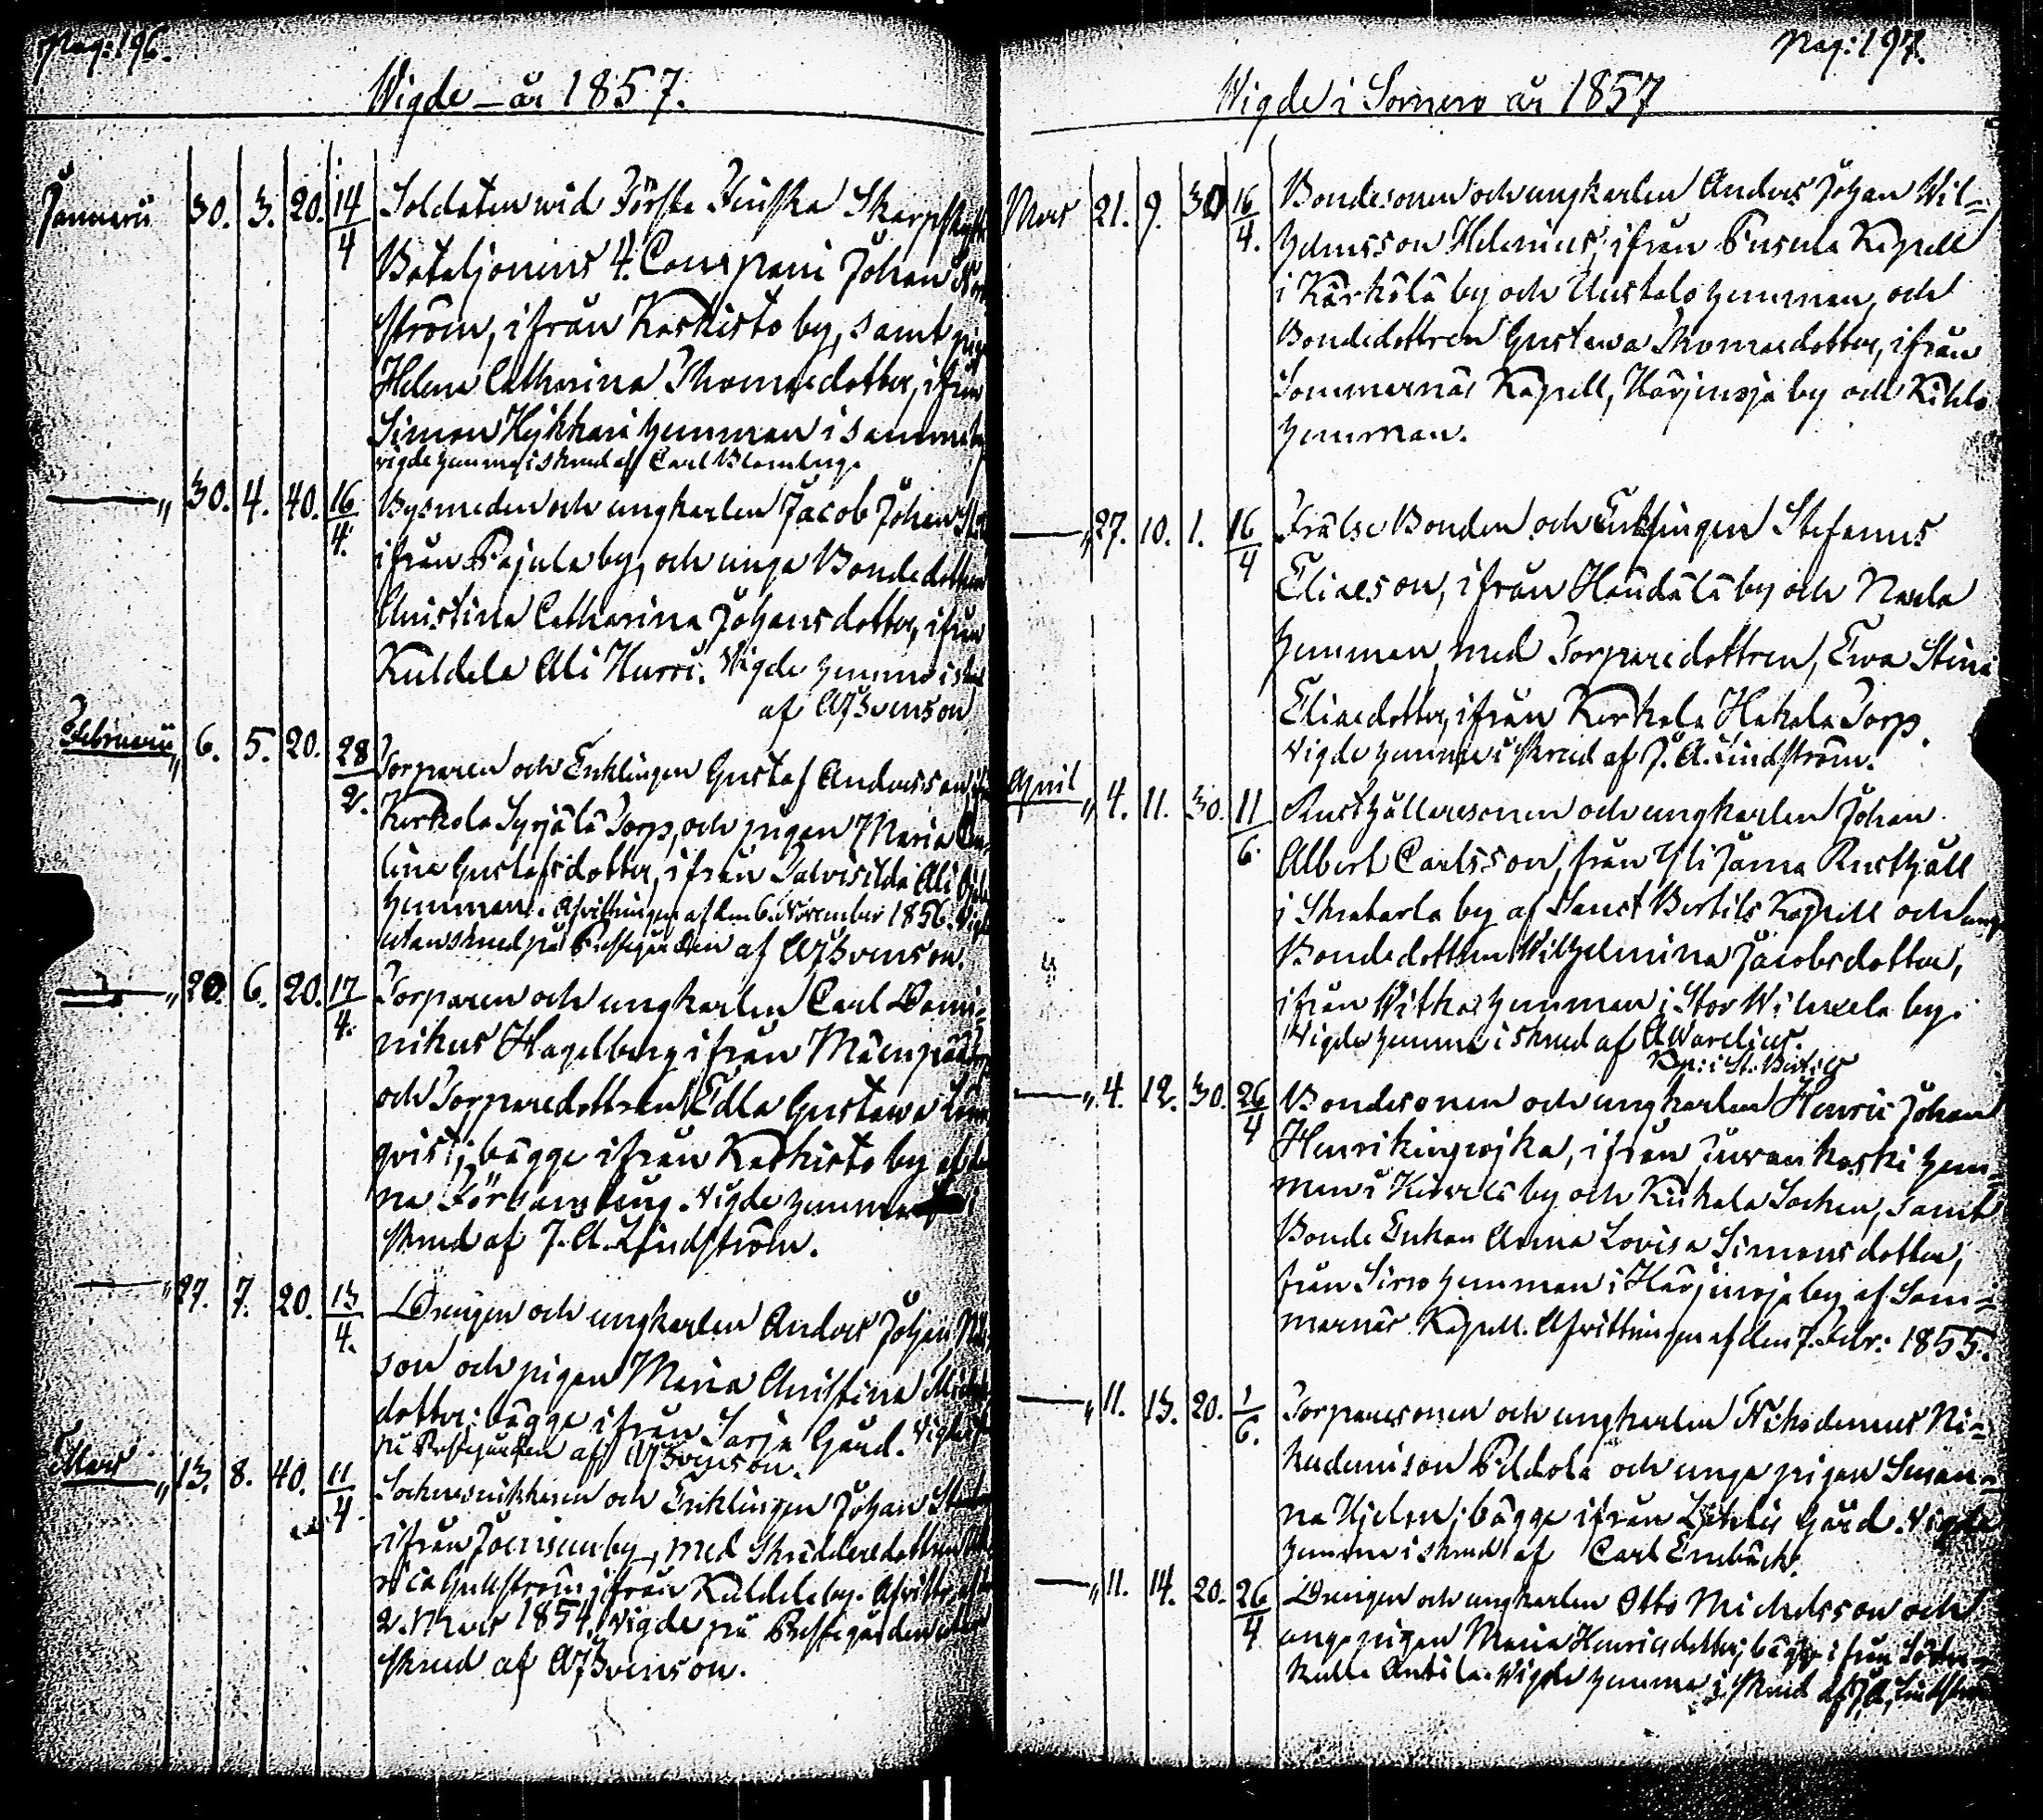 Pag: 196.
Wigde – år 1857.
Januari 30. 3. 20. 14/4 Soldaten wid Förste Finska
Bataljonens 4. Compani Johan
ström, ifrån Kaskisto by, samt
Helena Catharina Thomasdotter, ifrån
Simon Hykkari hemman i samma
vigde hemma i skrud af Carl Blomberg.
— " 30. 4. 40. 16/4. Bysmeden och ungkarlen Jacob Johan
ifrån Pajula by, och unga Bondedottren
Christina Catharina Johansdotter, ifrån
Kuldela Ali Hurri. Vigde hemma i
af Svenson
Februari " 6. 5. 20. 28/2. Torparen och Enklingen Gustaf Andersson
Kerkola Syrjälä Torp, och pigan Maria
lina Gustafsdotter, ifrån Talvisilda Ali
hemman. Afvittringen af den 6. November 1856.
utan skrud på Prestgården af Svenson.
— " 20. 6. 20. 17/4. Torparen och ungkarlen Carl Domi-
nikus Hagelberg ifrån
och Torparedottren Edla Gustawa
qvist; bägge ifrån Kaskisto by
na Församling. Vigde hemma i
skrud af J. A. Lindström.
— " 27. 7. 20. 13/4. Drengen och ungkarlen Anders Johan
son och pigan Maria Christina
dotter; bägge ifrån Sarja Gård.
på Prestgården af Svenson.
Mars " 13. 8. 40. 11/4 och Enklingen Johan
ifrån Joensuu by, med Skräddaredottren
rica Gullström, ifrån Kuldela by.
2. Mars 1854. Vigde på Prestgården utan
skrud af Svenson.
Pag: 197.
Wigde i Somero år 1857
Mars 21. 9. 30 16/4. Bondesonen och ungkarlen Anders Johan Wil-
helmsson Helenius, ifrån Pusula Kapell
i Kärkölä by och hemman, och
Bondedottren Gustawa Thomasdotter, ifrån
Sommernäs Kapell, Härjinoja by och
hemman.
— " 27. 10. 1. 16/4 Frälse Bonden och Enklingen Stefanus
Eliasson, ifrån Häntälä by och
hemman, med Torparedottren, Ewa Stina
Eliasdotter, ifrån Kerkola Hakala Torp.
Vigde hemma i skrud af J. A. Lindström.
April " 4. 11. 30. 11/6. Rusthållaresonen och ungkarlen Johan
Albert Carlsson, från Yli Jama Rusthåll
i by af Sanct Bertils Kapell och unga
Bondedottren Wilhelmina Jacobsdotter,
ifrån hemman i Stor by.
Vigde hemma i skrud af A Warelius.
Kap: i St. Bertils
— " 4. 12. 30. 26/4 Bondesonen och ungkarlen Henric Johan
Henrikinpojka, ifrån Juvankoski hem-
man i by och Kiikala Socken, samt
Bonde Enkan Anna Lovisa Simonsdotter,
från Sirro hemman i Härjinoja by af Som-
mernäs Kapell. Afvittringen af den 7. Febr: 1855.
— " 11. 13. 20. 1/6. Torparesonen och ungkarlen Nikodemus Ni-
kudemison Peldola och unga pigan Susan-
na Hjelm; bägge ifrån Gård. Vigde
hemma i skrud af Carl Enebäck.
— " 11. 14. 20. 26/4 Drengen och ungkarlen Otto Michelsson och
unga pigan Maria Henricsdotter, bägge ifrån
kulla Antila. Vigde hemma i skrud af J. A. Lindström